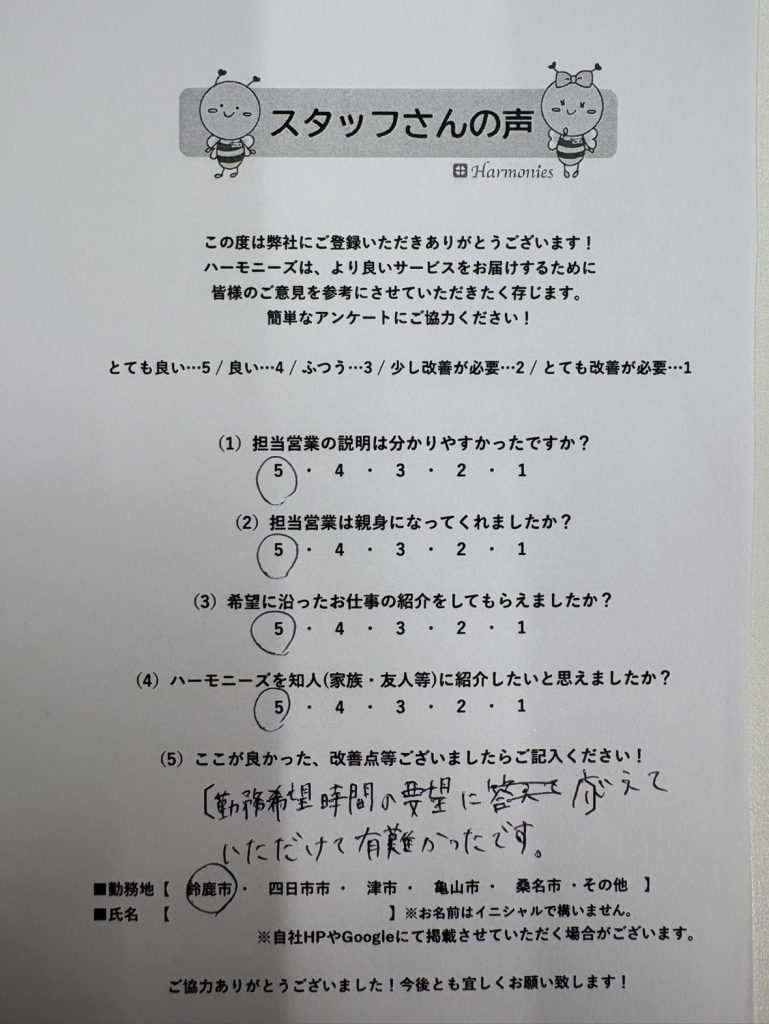 スタッフさんの声
Harmonies
この度は弊社にご登録いただきありがとうございます！
ハーモニーズは、より良いサービスをお届けするために
皆様のご意見を参考にさせていただきたく存じます。
簡単なアンケートにご協力ください！
とても良い…5 / 良い…4 / ふつう…3 / 少し改善が必要…2 / とても改善が必要…1
（1）担当営業の説明は分かりやすかったですか？
5 ・ 4 ・ 3 ・ 2 ・ 1
（2）担当営業は親身になってくれましたか？
5 ・ 4 ・ 3 ・ 2 ・ 1
（3）希望に沿ったお仕事の紹介をしてもらえましたか？
5 ・ 4 ・ 3 ・ 2 ・ 1
（4）ハーモニーズを知人(家族・友人等)に紹介したいと思えましたか？
5 ・ 4 ・ 3 ・ 2 ・ 1
（5）ここが良かった、改善点等ございましたらご記入ください！
勤務希望時間の要望に応えて
いただけて有難かったです。
■勤務地【 鈴鹿市・ 四日市市 ・ 津市 ・ 亀山市 ・ 桑名市 ・その他 】
■氏名 【 】※お名前はイニシャルで構いません。
※自社HPやGoogleにて掲載させていただく場合がございます。
ご協力ありがとうございました！今後とも宜しくお願い致します！